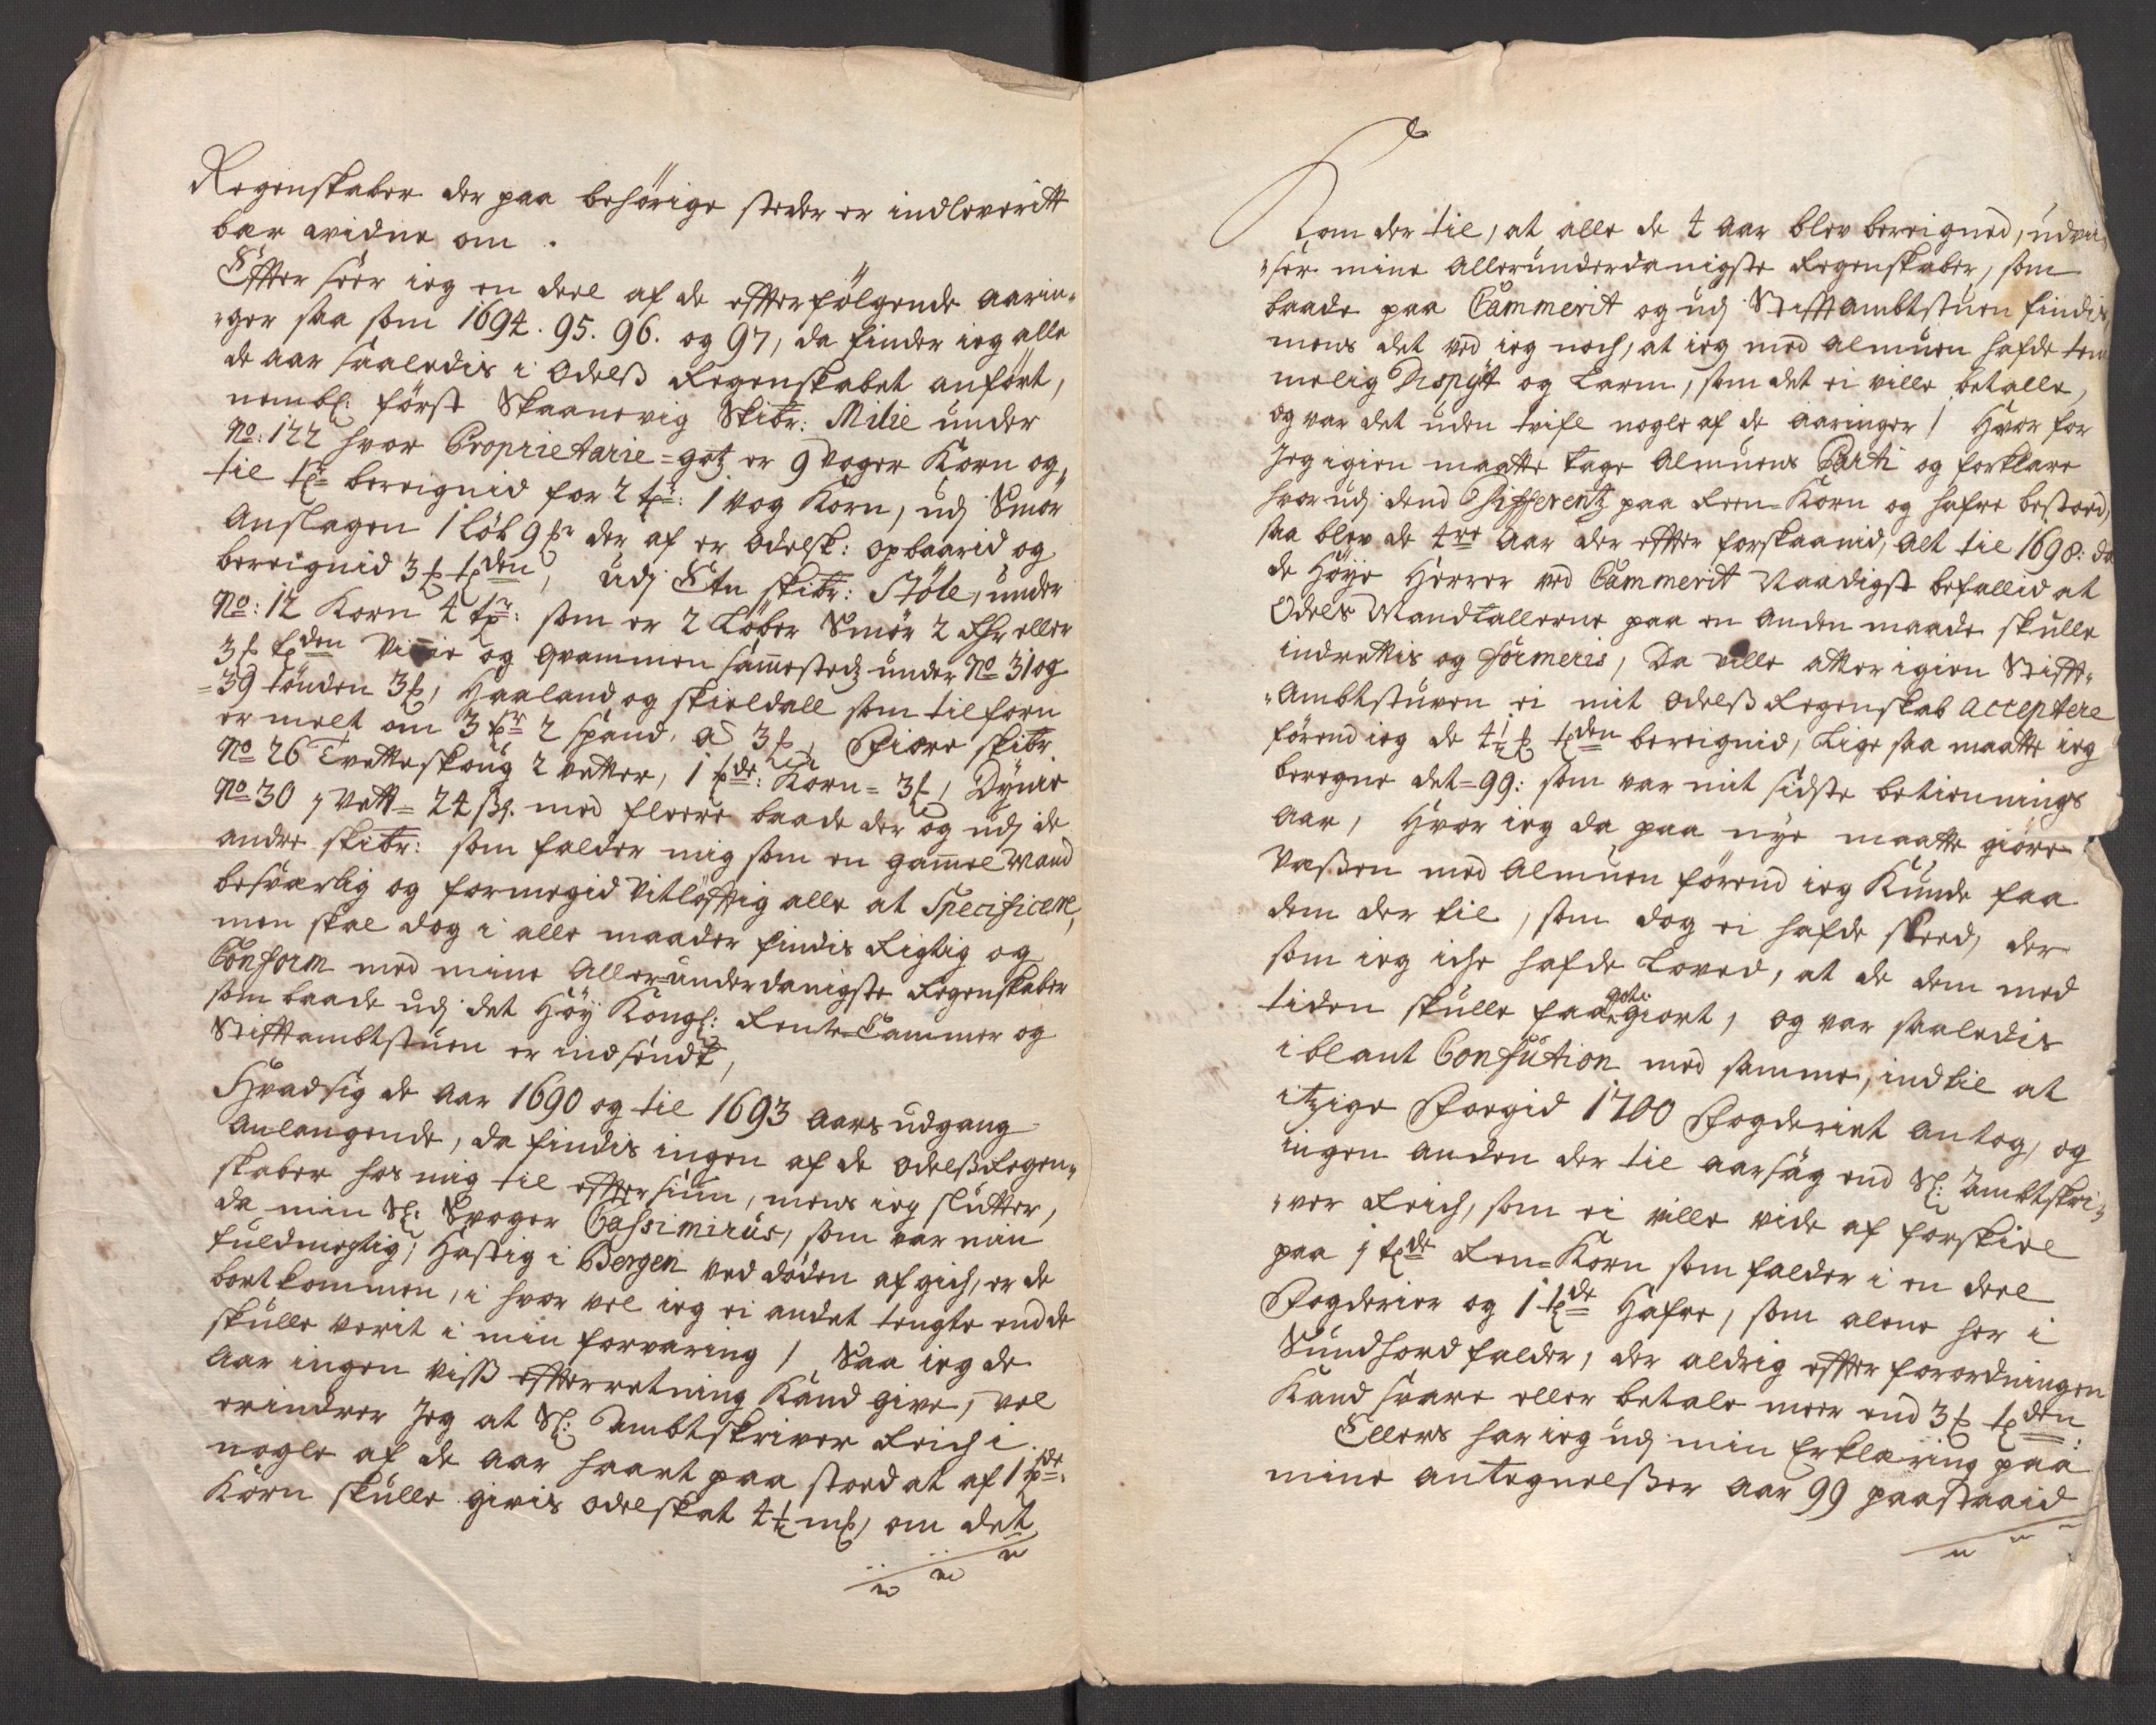 Regenskaber der paa behörige steder er indleveritt
bær vidne om.
Effter seer ieg en deel af de effterfölgende aarin-
-ger saa som 1694. 95. 96. og 97, da finder ieg alle
de aar saaledis i Odelß Regenskabet anfört,
nembl: först Skaanevig Skibr: Milie under
No: 122 hvor Proprietarie=gotz er 9 voger Korn og
til bereignid for 2 1 vog Korn, udj Smör
Anslagen 1 löb 9 der af er Odelsk: opbaarid og
bereignid 3 tden, udj Etn skibr: Stöle, under
No: 12 Korn 4 som er 2 Löber Smör 2 eller
3 tden og qvammen sammestedz under No 31 og
=39 tönden 3 Haaland og skieldall som tilforn
er melt om 3 2 spand, a 3 Fiære skibr
No 26 Tvetteskoug 2 vetter, 1 Korn = 3 Dymie
No 30 1 Vett = 24 ßl. med fleere baade der og udj de
andre skibr: som falder mig som en gammel Mand
besværlig og formegid Vitlöfftig alle at Specificere,
men skal dog i alle maader findis Rigtig og
Conform med mine Aller-underdanigste Regenskaber
som baade udj det Höy Kongl: Rente-Cammer og
Stifftambtstuen er indsendt,
Hvad sig de Aar 1690 og til 1693 Aars udgang
anlangende, da findis ingen af de odelßRegen-
skaber hos mig til efftersiun, mens ieg slutter,
da min Sl: Svoger Cassimirus, som var min
fuldmegtig, Hastig i Bergen ved döden afgich, er de
bortkommen, i hvor vel ieg ei andet tengte end de
skulle verit i min forvaring / Saa ieg de
Aar ingen viss effterretning Kand give, vel
erindrer Jeg at Sl: Ambtskriver Reich i
nogle af de Aar haart paa stoed at af 1
Korn skulle givis odelskat 4½ mk, om det
Kom der til, at alle de 4 Aar blev bereigned, udvi-
-ser mine Allerunderdanigste Regenskaber, som
baade paa Cammerit og udj Stifftambtstuen findis
mens det ved ieg noch, at ieg med almuen hafde tem
melig Dispyt og Larm, som det ei ville betalle,
og var det uden tvifl nogle af de Aaringer / Hvor for
Jeg igien maatte tage Almuens Parti og forklare
hvor udj dend Differentz paa Reen-Korn og hafre bestoed,
saa blev de 4re Aar der effter forskaanid, alt til 1698: da
de Höye Herrer ved Cammerit Naadigst befallid at
Odels Mandtallerne paa en Anden maade skulle
indrettis og formeris, Da ville atter igien Stifft-
-Ambtstuven ei mit Odelß Regenskab Acceptere
förend ieg de 4½ tden bereignid, Lige saa maatte ieg
beregne det = 99: som var mit sidste betiennings
Aar, Hvor ieg da paa nye maatte giöre
Vaßen med Almuen förend ieg Kunde faa
dem der til, som dog ei hafde skeed, der
som ieg iche hafde Loved, at de dem med
tiden skulle faa got giort, og var saaledis
iblant Confution med samme, indtil at
itzige Foegid 1700 Fogderiet antog, og
ingen anden der til Aarsag end Sl: Ambtskri-
-ver Reich, som ei ville vide af forskiel
paa 1 tde Reen-Korn som falder i en deel
Fogderier og 1 tde Hafre, som alene her i
Sundhord falder, der aldrig effter forordningen
Kand svare eller betale meer end 3 tden:
Ellers har ieg udj min Erklæring paa
mine antegnelßer Aar 99 paastaaid